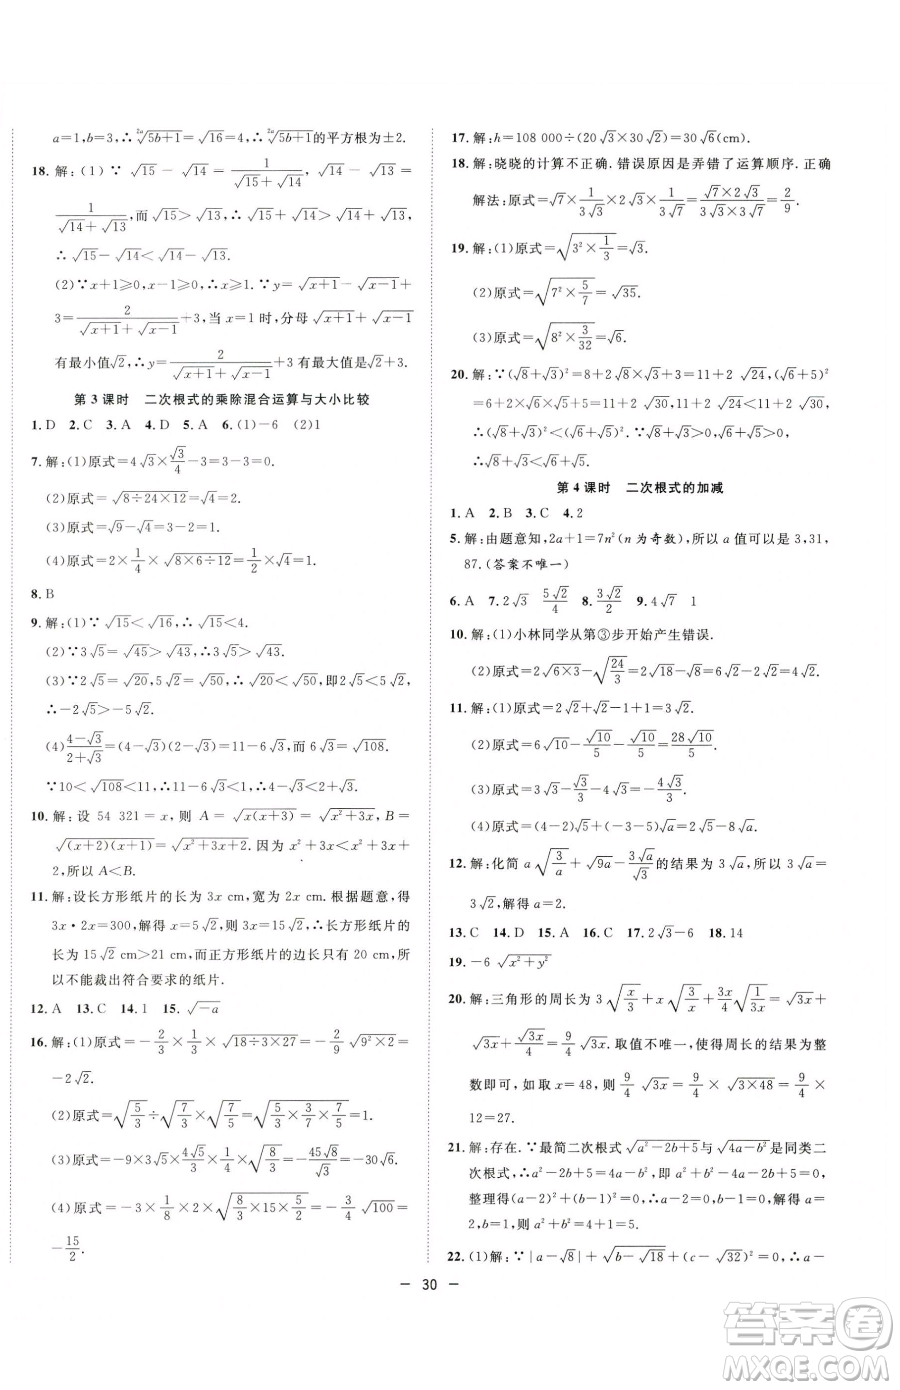 a=1,b=3,∴\sqrt[2a]{5b+1}=√16=4,∴\sqrt[2a]{5b+1}的平方根为±2.
18. 解:(1)∵ √15-√14=1/(√15+√14),√14-√13=
1/(√14+√13),而√15>√13,∴√15+√14>√14+√13,
∴√15-√14<√14-√13.
(2)∵x+1≥0,x-1≥0,∴x≥1.∵y=√(x+1)-√(x-1)+
3=2/(√(x+1)+√(x-1))+3,当x=1时,分母√(x+1)+√(x-1)
有最小值√2,∴y=2/(√(x+1)+√(x-1))+3有最大值是√2+3.
第3课时 二次根式的乘除混合运算与大小比较
1. D 2. C 3. A 4. D 5. A 6. (1)-6 (2)1
7. 解:(1)原式=4√3×√3/4-3=3-3=0.
(2)原式=√(8÷24×12)=√4=2.
(3)原式=√9-√4=3-2=1.
(4)原式=2×1/4×√(8÷6×12)=1/2×√16=2.
8. B
9. 解:(1)∵√15<√16,∴√15<4.
(2)∵3√5=√45,2√11=√44,∴3√5>2√11.
(3)∵2√5=√20,5√2=√50,√20<√50,即2√5<5√2,
∴-2√5>-5√2.
(4)(4-√3)/(2+√3)=(4-√3)(2-√3)=11-6√3,而6√3=√108.
∵10<√108<11,∴11-6√3<1.∴4-√3<2+√3.
10. 解:设 54 321=x,则 A=√(x(x+3))=√(x²+3x),B=
√((x+2)(x+1))=√(x²+3x+2).因为 x²+3x<x²+3x+
2,所以A<B.
11. 解:设长方形纸片的长为3x cm,宽为2x cm.根据题意,得
3x·2x=300,解得x=5√2,则3x=15√2,∴长方形纸片的
长为15√2 cm>21 cm,而正方形纸片的边长只有20 cm,
所以不能裁出符合要求的纸片.
12. A 13. C 14. 1 15. √-a
16. 解:(1)原式=-2/3×1/3×√(18÷3×27)=-2/9√(9²×2)=
-2√2.
(2)原式=√(5/3)÷√(7/3)×√(7/5)=√(5/3×3/7×7/5)=1.
(3)原式=-9×3√5×4√5/(3/2)×√(8/3)=-45√8/√3=-30√6.
(4)原式=-3×1/8×2×√(8/3×15×5/2)=-3/4×√100=
-15/2.
17. 解:h=108 000÷(20√3×30√2)=30√6(cm).
18. 解:晓晓的计算不正确.错误原因是弄错了运算顺序.正确
解法:原式=√7×1/(3√3)×2√3×1/(3√7)=(√7×2√3)/(3√3×3√7)=2/9.
19. 解:(1)原式=√(3²×1/3)=√3.
(2)原式=√(7²×5/7)=√35.
(3)原式=√(8²×3/32)=√6.
20. 解:∵(√8+√3)²=8+2√8×3+3=11+2√24,(√6+√5)²
=6+2√6×5+5=11+2√30,又∵11+2√24<11+2√30,
∴(√8+√3)²<(√6+√5)².∴√8+√3<√6+√5.
第4课时 二次根式的加减
1. A 2. B 3. C 4. 2
5. 解:由题意知,2a+1=7n²(n为奇数),所以a值可以是3,31,
87.(答案不唯一)
6. A 7. 2√3 5√2/4 8. 3√2/2 9. 4√7 1
10. 解:(1)小林同学从第③步开始产生错误.
(2)原式=2√(6×3)-√(24/3)=2√18-√8=6√2-2√2=4√2.
11. 解:(1)原式=2√2+√2-1+1=3√2.
(2)原式=6√10-√10/5-√10/5=28√10/5.
(3)原式=3√3-√3/3-2√3=2√3/3.
(4)原式=(4-2)√5+(-3+5)√2=2√5+2√2.
12. 解:化简a√(3/a)+√9a-3√a/√3的结果为3√a,所以3√a=
3√2,解得a=2.
13. C 14. D 15. A 16. C 17. 2√3-6 18. 14
19. -6√(x²+y²)
20. 解:三角形的周长为3√(x/3)+x√(3/x)+3/4√(x/3)=√3x+
√3x+√3x/4=9/4√3x.取值不唯一,使周长的结果为整
数即可,如取x=48,则9/4√3x=9/4×√(3×48)=9/4×
12=27.
21. 解:存在.∵最简二次根式√(a²-2b+5)与√(4a-b²)是同类二
次根式,∴a²-2b+5=4a-b²,即a²-4a+b²-2b+5=0,
整理得(a-2)²+(b-1)²=0,∴a-2=0,b-1=0,解得a=
2,b=1,所以a²+b²=4+1=5.
22. (1)解:∵|a-√8|+√(b-√18)+(c-√32)²=0,∴a-
- 30 -
答案圈
MXQE.COM